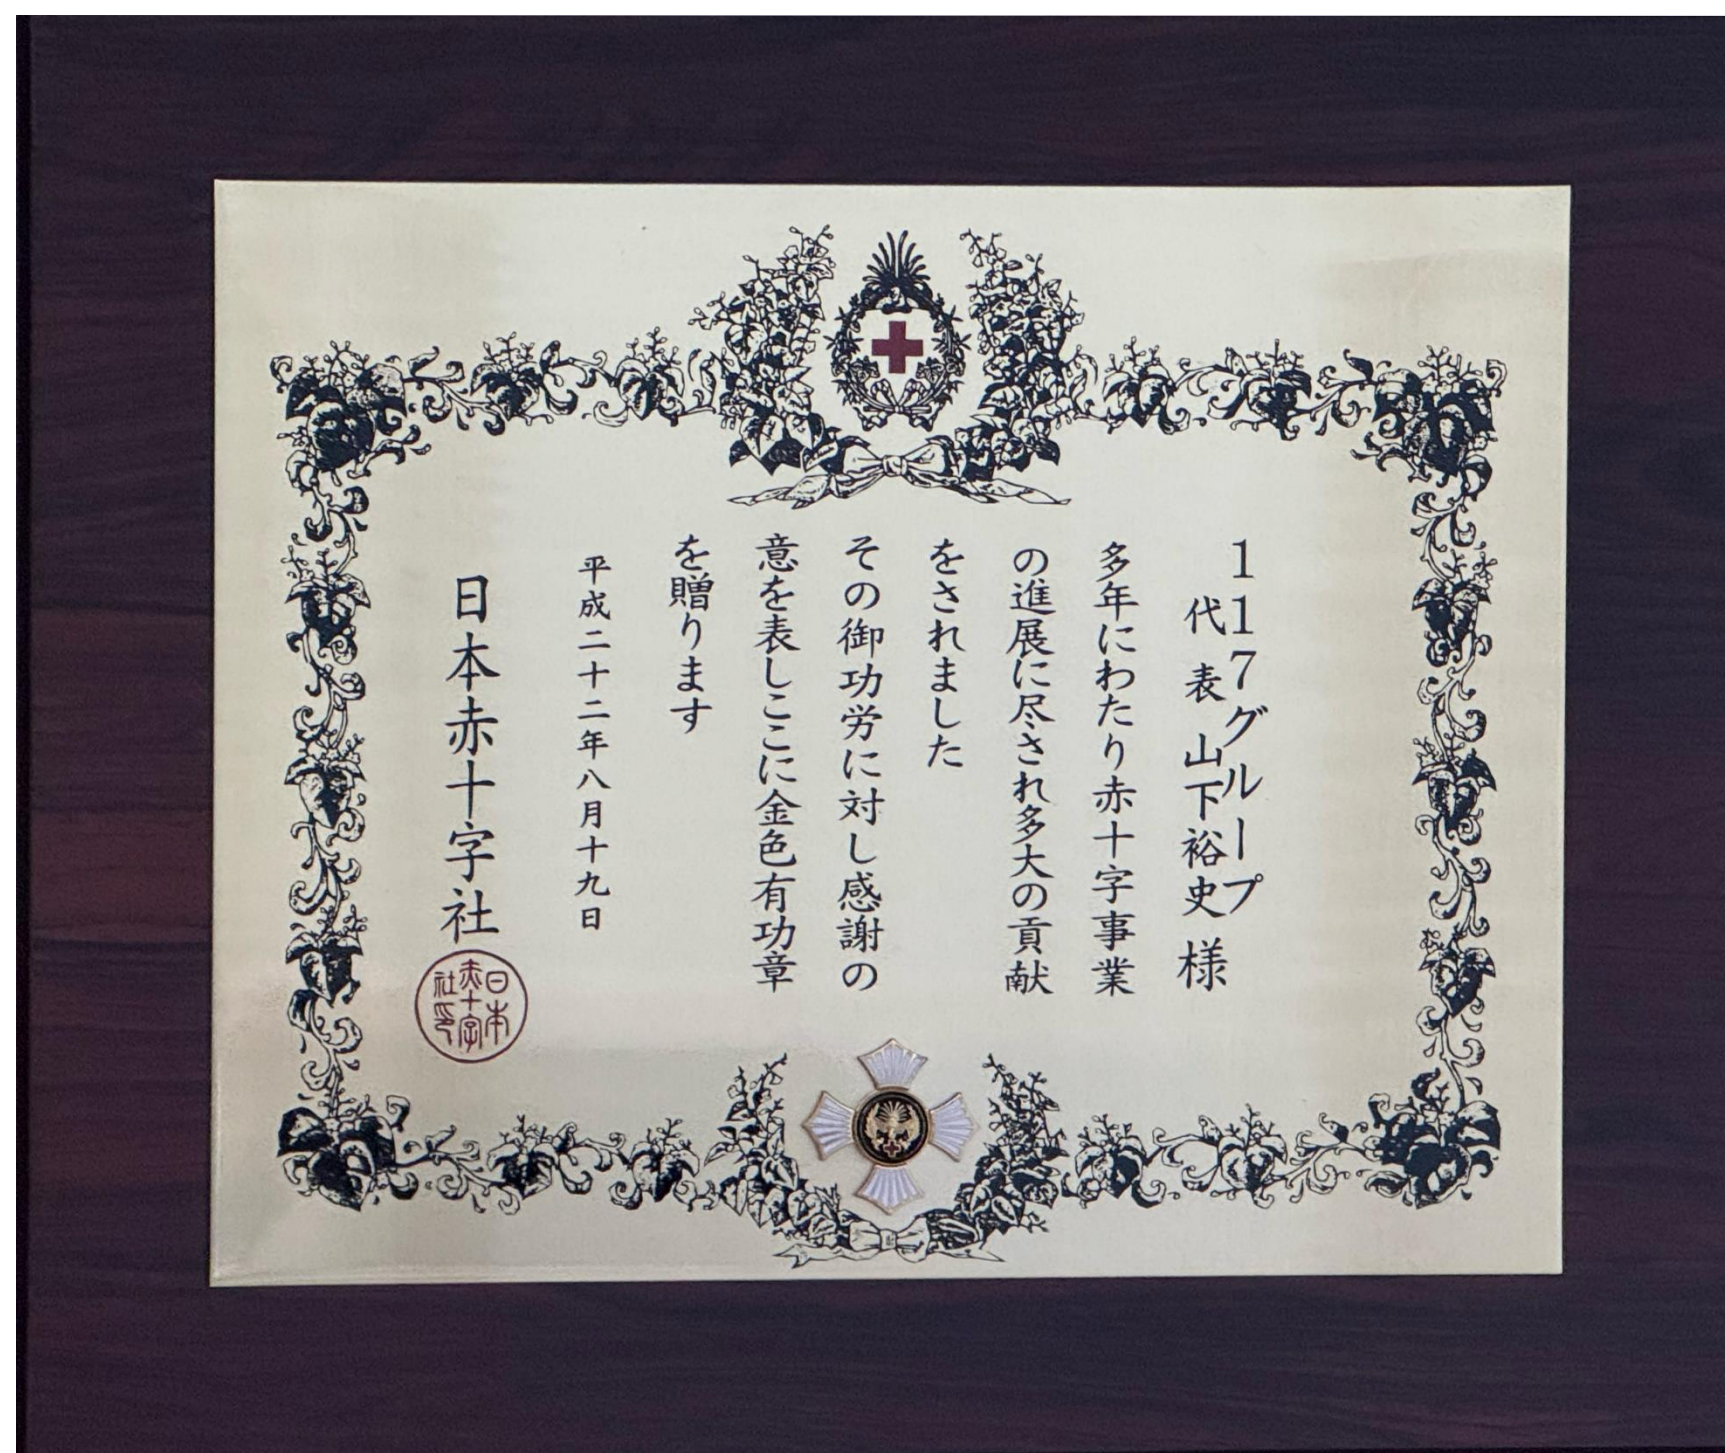 117グループ
代表 山下裕史 様
多年にわたり赤十字事業
の進展に尽され多大の貢献
をされました
その御功労に対し感謝の
意を表しここに金色有功章
を贈ります
平成二十二年八月十九日
日本赤十字社
日本
赤十字
社印